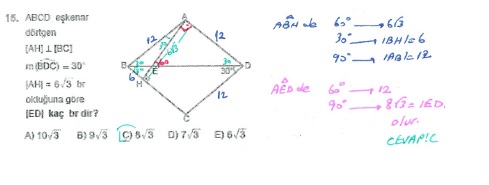 15. ABCD eşkenar
dörtgen
[AH] ⊥ [BC]
m(BDC) = 30°
|AH| = 6√3 br
olduğuna göre
|ED| kaç br dir?
A) 10√3 B) 9√3 C) 8√3 D) 7√3 E) 6√3
A
12
12
30°
6√3
B
30°
60°
E
30°
D
6
H
12
C
ABH de 60° → 6√3
30° → |BH| = 6
90° → |AB| = 12
AED de 60° → 12
90° → 8√3 = |ED|
olur.
CEVAP: C